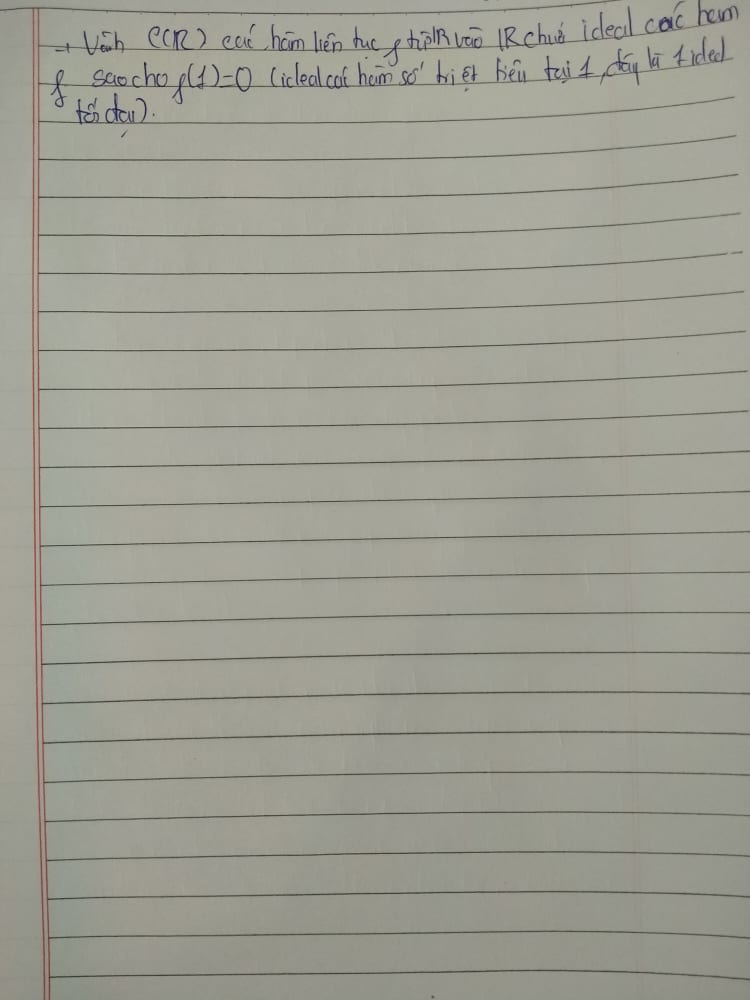 → Vành C(R) các hàm liên tục f từ R vào R chứa ideal các hàm
f sao cho f(1)=0 (ideal các hàm số triệt tiêu tại 1, đây là 1 ideal
tối đại).